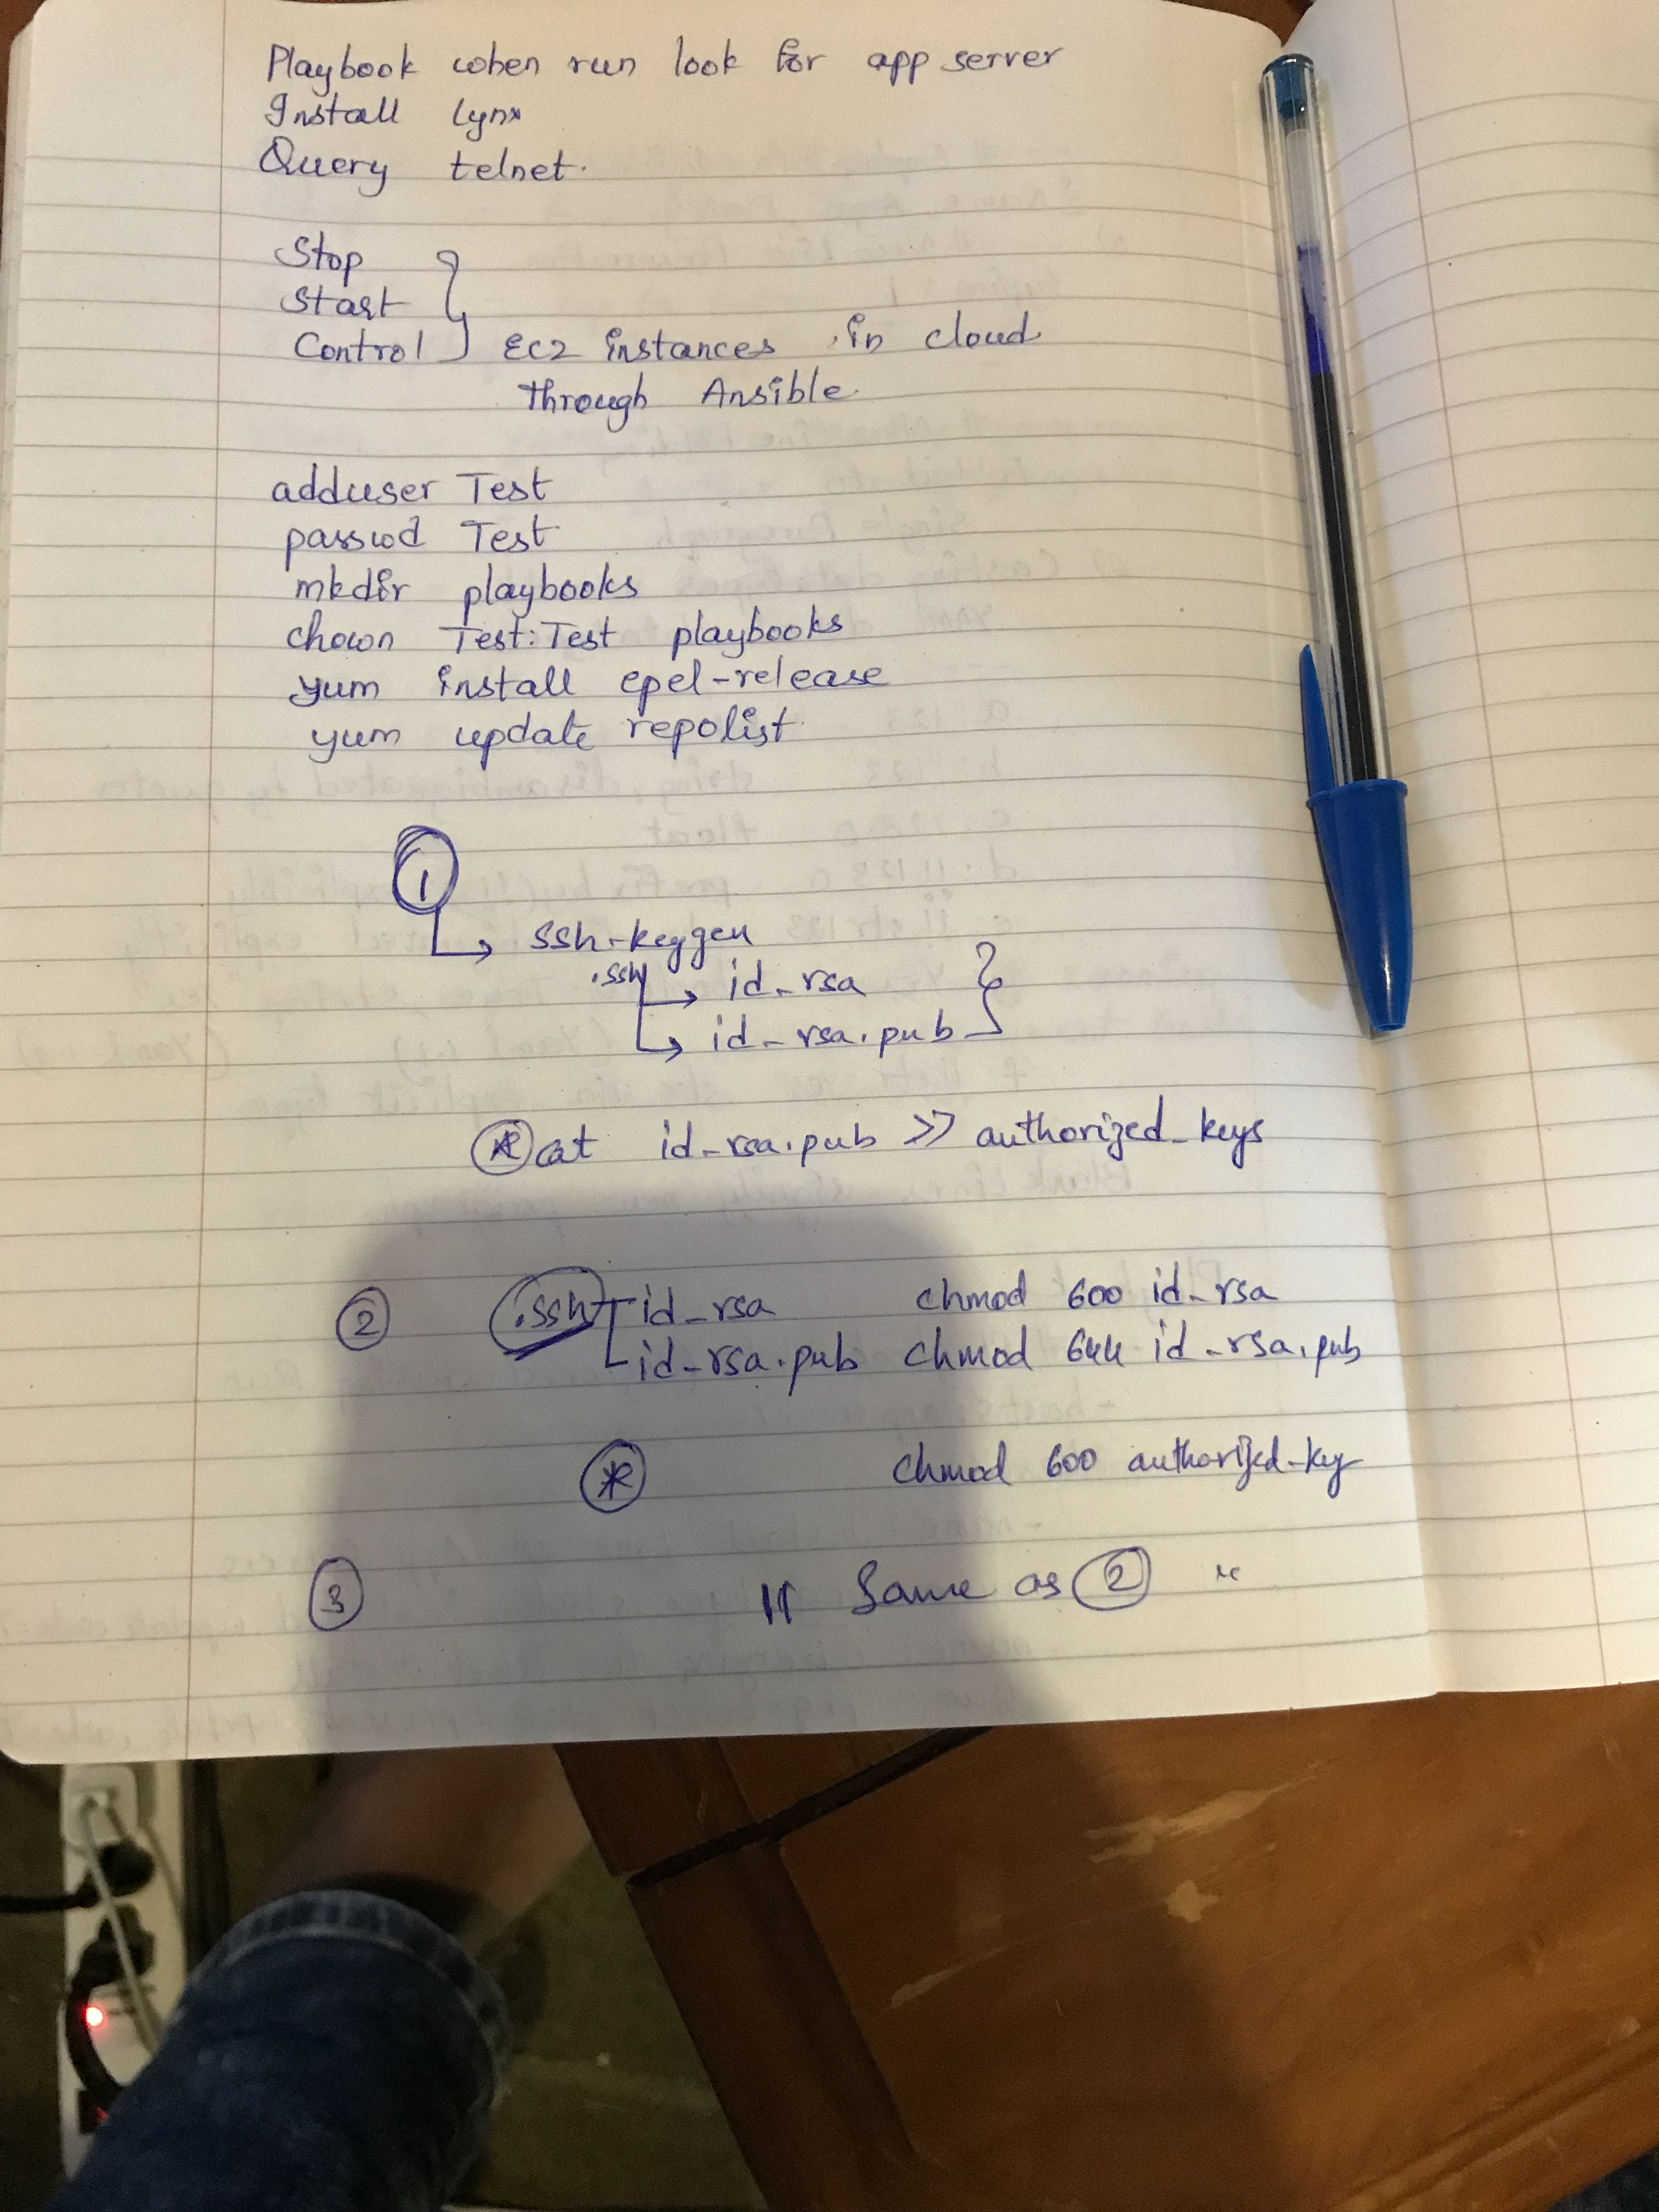 Playbook when run look for app server
Install Lynx
Query telnet.
Stop
Start
Control EC2 instances in cloud
through Ansible
adduser Test
passwd Test
mkdir playbooks
chown Test:Test playbooks
yum install epel-release
yum update repolist
1
ssh-keygen
.ssh → id_rsa
→ id_rsa.pub
* cat id_rsa.pub >> authorized_keys
2 .ssh id_rsa chmod 600 id_rsa
id_rsa.pub chmod 644 id_rsa.pub
* chmod 600 authorized_key
3 " Same as 2 "